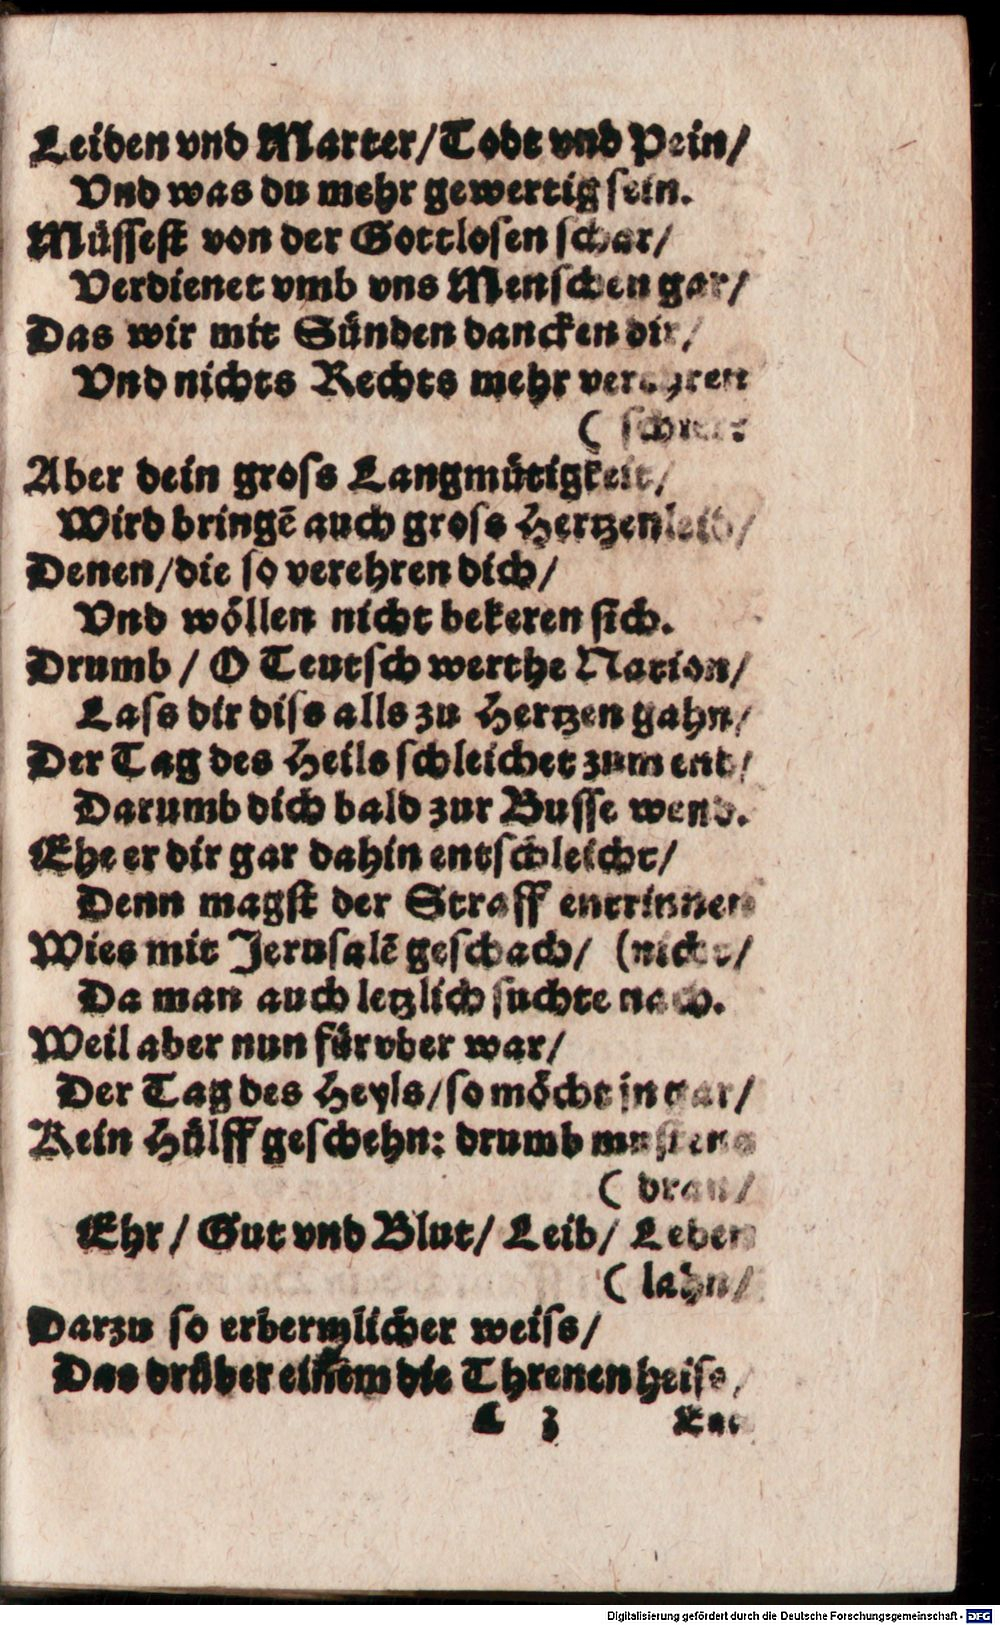 Leiden vnd Marter/Todt vnd Pein/
Vnd was du mehr gewertig sein.
Müssest von der Gottlosen schar/
Verdienet vmb vns Menschen gar/
Das wir mit Sünden dancken dir/
Vnd nichts Rechts mehr
(
Aber dein gross Langmütigkeit/
Wird bringē auch gross Hertzenleid/
Denen/die so verehren dich/
Vnd wöllen nicht bekeren sich.
Drumb / O Teutsch werthe Nation/
Lass dir diss alls zu Hertzen gahn/
Der Tag des Heils schleichet zum end/
Darumb dich bald zur Busse wend.
Ehe er dir gar dahin entschleicht/
Denn magst der Straff entrinnen
Wies mit Jerusalē geschach/ (nicht/
Da man auch letzlich suchte nach.
Weil aber nun fürvber war/
Der Tag des Heyls/so möcht jn gar/
Kein Hülff geschehn: drumb mustens
( dran/
Ehr / Gut vnd Blut/ Leib/ Leben
( lahn/
Darzu so erbermlicher weiss/
Das drüber einem die Threnen heiss/
3
Digitalisierung gefördert durch die Deutsche Forschungsgemeinschaft - DFG